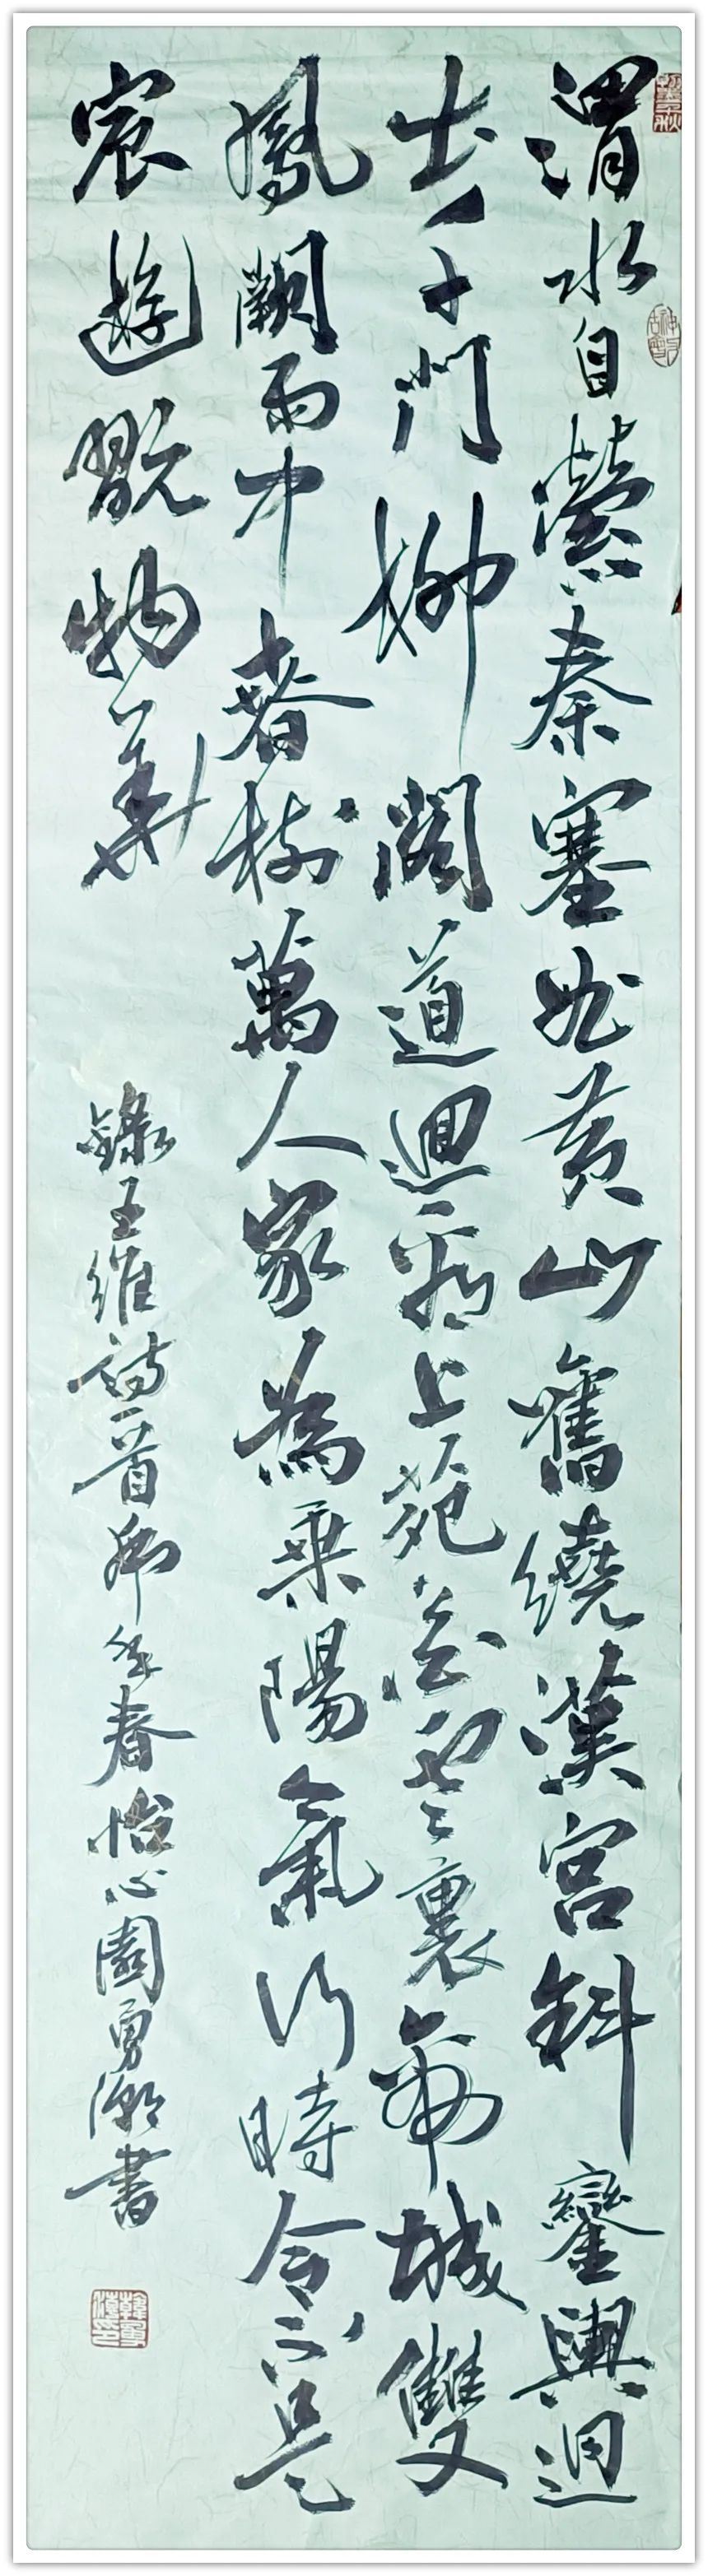 渭水自縈秦塞曲黃山舊繞漢宮斜鑾輿迥
出千門柳閣道迴看上苑花雲裏帝城雙
鳳闕雨中春樹萬人家為乘陽氣行時令不是
宸遊翫物華
錄王維詩一首卯年春怡心園勇書